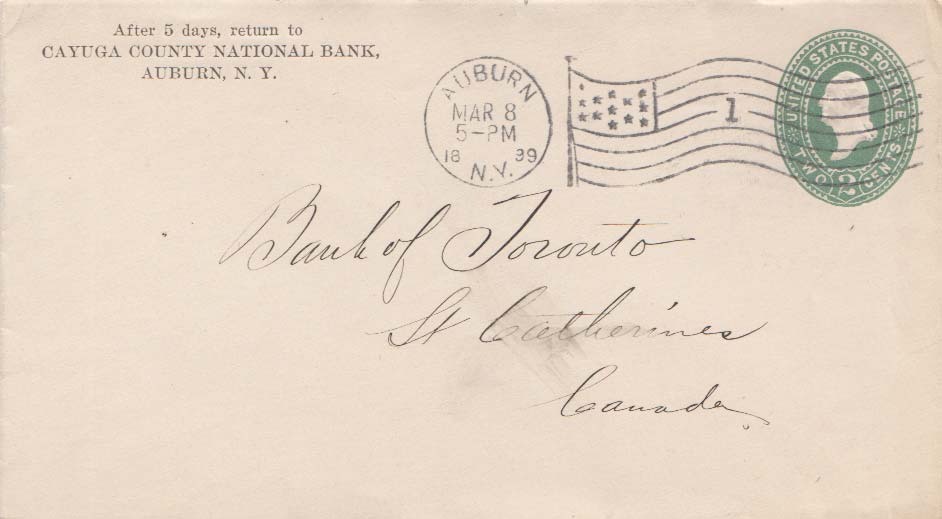 After 5 days, return to
CAYUGA COUNTY NATIONAL BANK,
AUBURN, N. Y.
AUBURN
MAR 8
5-PM
18 99
N.Y.
1
UNITED STATES POSTAGE
TWO 2 CENTS
Bank of Toronto
St Catherines
Canada